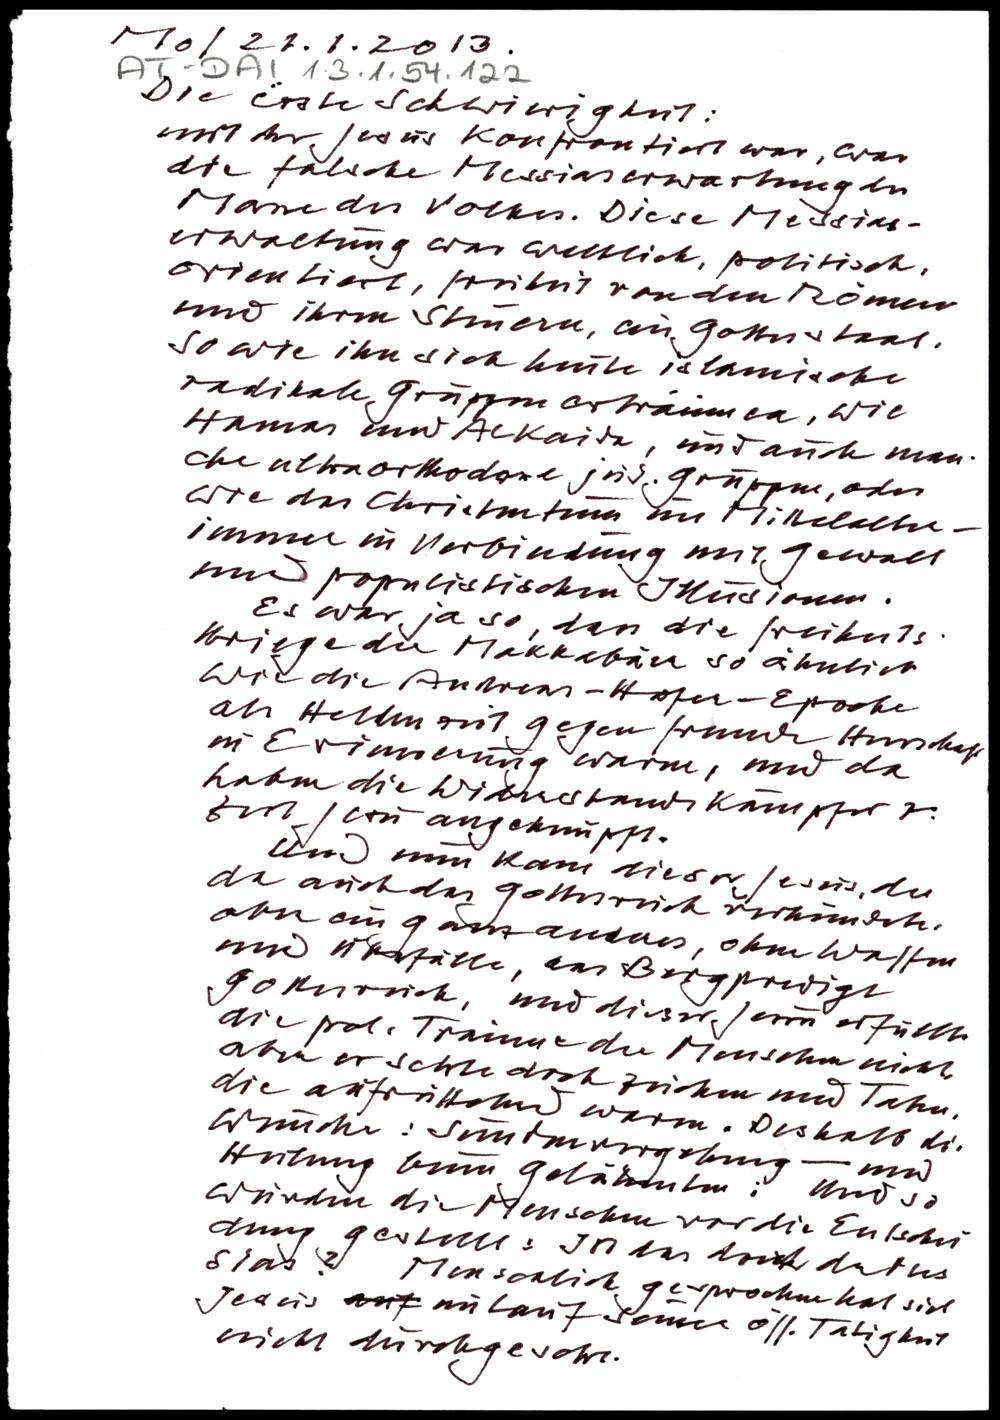 Mo/ 21.1.2013.
AT-DAI 13.1.54.122
Die erste Schwierigkeit:
mit der Jesus konfrontiert war, war
die falsche Messiaserwartung der
Masse des Volkes. Diese Messias-
erwartung war weltlich, politisch,
orientiert, Freiheit von den Römern
und ihren Steuern, ein Gottesstaat.
So wie ihn sich heute islamische
radikale Gruppen erträumen, wie
Hamas und AlKaida, und auch man-
che ultraorthodoxe jüd. Gruppen, oder
wie das Christentum im Mittelalter –
immer in Verbindung mit Gewalt
und populistischen Illusionen.
Es war ja so, dass die Freiheits-
kriege der Makkabäer so ähnlich
wie die Andreas-Hofer-Epoche
als Heldenzeit gegen fremde Herrschaft
in Erinnerung waren, und da
haben die Widerstandskämpfer z.
Zeit Jesu angeknüpft.
Und nun kam dieser Jesus, der
da auch das Gottesreich verkündete,
aber ein ganz anderes, ohne Waffen
und, das Bergpredigt
Gottesreich, und dieser Jesus erfüllte
die pol. Träume der Menschen nicht,
aber er setzte doch Zeichen und Taten,
die aufrüttelnd waren. Deshalb die
: Sündenvergebung – und
Heilung beim Gelähmten: Und so
wurden die Menschen vor die Entschei
dung gestellt: Ist das doch der Mes
sias? Menschlich gesprochen hat sich
Jesus im Lauf seiner öff. Tätigkeit
nicht durchgesetzt.